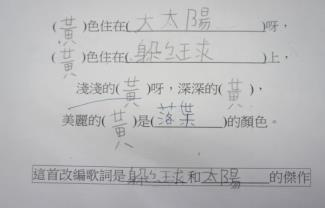 (黃)色住在(大太陽)呀，
(黃)色住在(躲避球)上，
淺淺的(黃)呀，深深的(黃)，
美麗的(黃)是(落葉)的顏色。
這首改編歌詞是躲避球和太陽的傑作